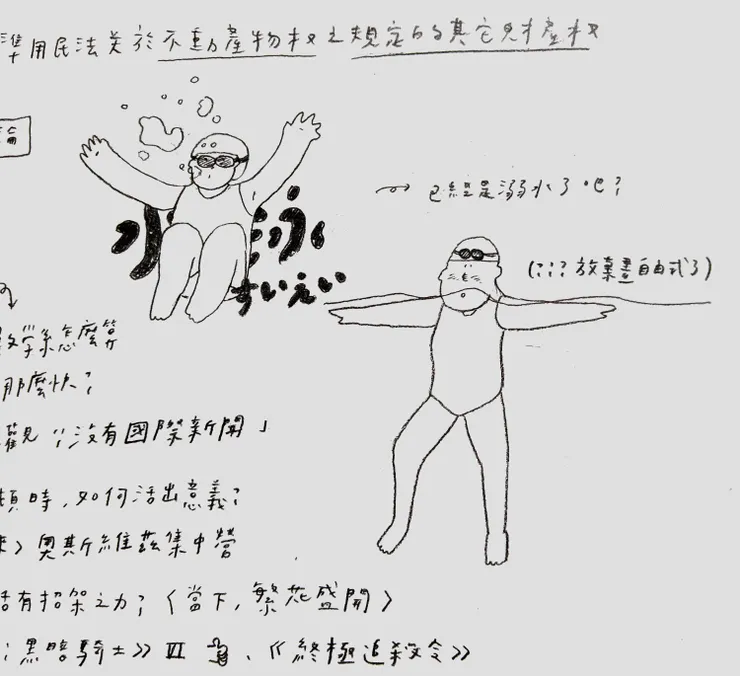 準用民法关於不動產物权之規定的其它財產权
論
水泳
すいえい
已經是溺水了吧？
(：：？放棄自由式了)
數学系怎麼算
那麼快？
觀「沒有國際新聞」
頓時，如何活出意義？
來〉奧斯維茲集中營
有招架之力？〈當下，繁花盛開〉
：黑暗騎士》VI 、《終極追殺令》